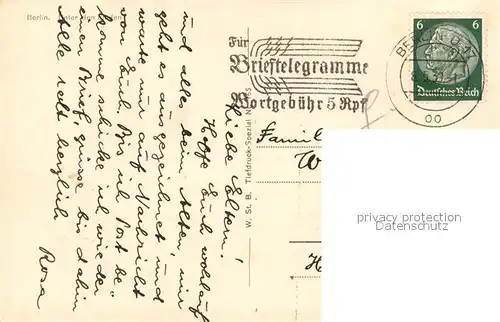 Berlin. Unter den Linden
Für
Brieftelegramme
Wortgebühr 5 Rpf
6 6
Deutsches Reich
BERLIN
oo
W. St. B. Tiefdruck-Spezial
Liebe Eltern!
Hoffe Euch wohlauf
und alles beim Alten, mir
geht es ausgezeichnet und
warte nur auf Nachricht
von Euch. Bis ich Post be-
komme schicke ich wieder
einen Brief, grüsse bis dahin
Alle recht herzlich
Rosa
Famil
W
H
privacy protection
Datenschutz